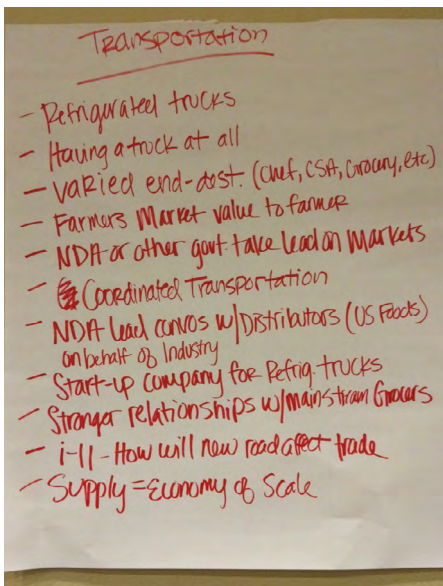 Transportation
- Refrigerated trucks
- Having a truck at all
- Varied end-dest. (Chef, CSA, Grocery, etc)
- Farmers Market value to farmer
- NDA or other govt. take lead on Markets
- Coordinated Transportation
- NDA Lead convos w/Distributors (US Foods)
on behalf of Industry
- Start-up company for Refrig. trucks
- Stronger relationships w/mainstream Grocers
- i-11 - How will new road affect trade
- Supply = Economy of Scale